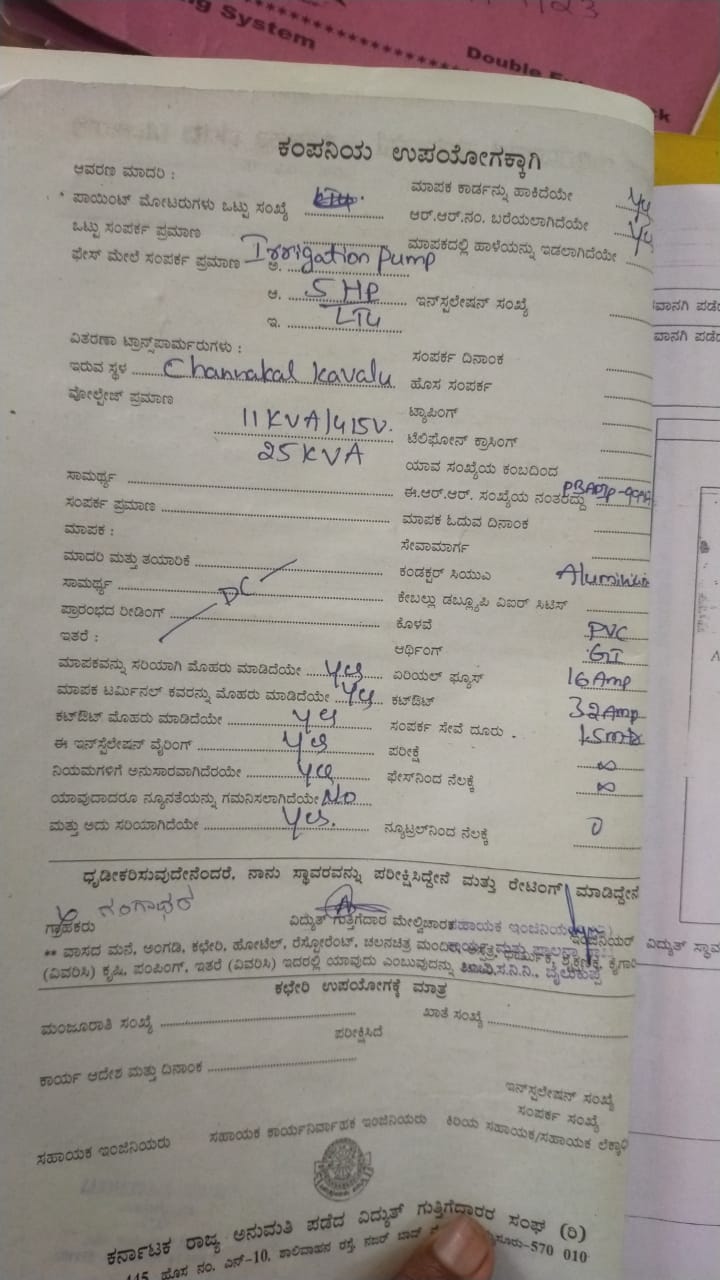 /23
ng System
Double
ck
ಕಂಪನಿಯ ಉಪಯೋಗಕ್ಕಾಗಿ
ಆವರಣ ಮಾದರಿ :
ಮಾಪಕ ಕಾರ್ಡನ್ನು ಹಾಕಿದೆಯೇ
ಪಾಯಿಂಟ್ ಮೋಟರುಗಳು ಒಟ್ಟು ಸಂಖ್ಯೆ
ಆರ್.ಆರ್.ನಂ. ಬರೆಯಲಾಗಿದೆಯೇ
ಒಟ್ಟು ಸಂಪರ್ಕ ಪ್ರಮಾಣ
ಮಾಪಕದಲ್ಲಿ ಹಾಳೆಯನ್ನು ಇಡಲಾಗಿದೆಯೇ
ಫೇಸ್ ಮೇಲೆ ಸಂಪರ್ಕ ಪ್ರಮಾಣ ಅ. Irrigation pump
ಆ. 5 HP ಇನ್‌ಸ್ಟಲೇಷನ್ ಸಂಖ್ಯೆ
ಇ. LT4
ವಿತರಣಾ ಟ್ರಾನ್ಸ್‌ಪಾರ್ಮರುಗಳು :
ಸಂಪರ್ಕ ದಿನಾಂಕ
ಇರುವ ಸ್ಥಳ Channakal Kavalu ಹೊಸ ಸಂಪರ್ಕ
ವೋಲ್ಟೇಜ್ ಪ್ರಮಾಣ
ಟ್ಯಾಪಿಂಗ್
11KVA/415V. ಟೆಲಿಫೋನ್ ಕ್ರಾಸಿಂಗ್
25KVA ಯಾವ ಸಂಖ್ಯೆಯ ಕಂಬದಿಂದ
ಸಾಮರ್ಥ್ಯ ಈ.ಆರ್.ಆರ್. ಸಂಖ್ಯೆಯ ನಂತರದ್ದು
ಸಂಪರ್ಕ ಪ್ರಮಾಣ ಮಾಪಕ ಓದುವ ದಿನಾಂಕ
ಮಾಪಕ : ಸೇವಾಮಾರ್ಗ
ಮಾದರಿ ಮತ್ತು ತಯಾರಿಕೆ ಕಂಡಕ್ಟರ್ ಸಿಯುಎ
ಸಾಮರ್ಥ್ಯ DC ಕೇಬಲ್ಲು ಡಬ್ಲ್ಯೂಪಿ ವಿಐರ್ ಸಿಟಿಸ್
ಪ್ರಾರಂಭದ ರೀಡಿಂಗ್ ಕೊಳವೆ PVC
ಇತರೆ : ಆರ್ಥಿಂಗ್ GI
ಮಾಪಕವನ್ನು ಸರಿಯಾಗಿ ಮೊಹರು ಮಾಡಿದೆಯೇ Yes ಏರಿಯಲ್ ಫ್ಯೂಸ್ 16 Amp
ಮಾಪಕ ಟರ್ಮಿನಲ್ ಕವರನ್ನು ಮೊಹರು ಮಾಡಿದೆಯೇ Yes ಕಟ್‌ಔಟ್ 32 Amp
ಕಟ್‌ಔಟ್ ಮೊಹರು ಮಾಡಿದೆಯೇ Yes ಸಂಪರ್ಕ ಸೇವೆ ದೂರು
ಈ ಇನ್‌ಸ್ಟೆಲೇಷನ್ ವೈರಿಂಗ್ Yes ಪರೀಕ್ಷೆ ∞
ನಿಯಮಗಳಿಗೆ ಅನುಸಾರವಾಗಿದೆರಯೇ Yes ಫೇಸ್‌ನಿಂದ ನೆಲಕ್ಕೆ ∞
ಯಾವುದಾದರೂ ನ್ಯೂನತೆಯನ್ನು ಗಮನಿಸಲಾಗಿದೆಯೇ NO
ಮತ್ತು ಅದು ಸರಿಯಾಗಿದೆಯೇ Yes. ನ್ಯೂಟ್ರಲ್‌ನಿಂದ ನೆಲಕ್ಕೆ 0
ಧೃಡೀಕರಿಸುವುದೇನೆಂದರೆ, ನಾನು ಸ್ಥಾವರವನ್ನು ಪರೀಕ್ಷಿಸಿದ್ದೇನೆ ಮತ್ತು ರೇಟಿಂಗ್ ಮಾಡಿದ್ದೇನೆ
ಗ್ರಾಹಕರು ವಿದ್ಯುತ್ ಗುತ್ತಿಗೆದಾರ ಮೇಲ್ವಿಚಾರಕ ಸಹಾಯಕ ಇಂಜಿನಿಯರ್ ವಿದ್ಯುತ್
** ವಾಸದ ಮನೆ, ಅಂಗಡಿ, ಕಛೇರಿ, ಹೋಟೆಲ್, ರೆಸ್ಟೋರೆಂಟ್, ಚಲನಚಿತ್ರ ಮಂದಿರ,
(ವಿವರಿಸಿ) ಕೃಷಿ, ಪಂಪಿಂಗ್, ಇತರೆ (ವಿವರಿಸಿ) ಇದರಲ್ಲಿ ಯಾವುದು ಎಂಬುವುದನ್ನು
ಕಛೇರಿ ಉಪಯೋಗಕ್ಕೆ ಮಾತ್ರ
ಮಂಜೂರಾತಿ ಸಂಖ್ಯೆ ಖಾತೆ ಸಂಖ್ಯೆ
ಪರೀಕ್ಷಿಸಿದೆ
ಕಾರ್ಯ ಆದೇಶ ಮತ್ತು ದಿನಾಂಕ
ಇನ್‌ಸ್ಟಲೇಷನ್ ಸಂಖ್ಯೆ
ಸಂಪರ್ಕ ಸಂಖ್ಯೆ
ಸಹಾಯಕ ಇಂಜಿನಿಯರು ಸಹಾಯಕ ಕಾರ್ಯನಿರ್ವಾಹಕ ಇಂಜಿನಿಯರು ಕಿರಿಯ ಸಹಾಯಕ/ಸಹಾಯಕ
ಕರ್ನಾಟಕ ರಾಜ್ಯ ಅನುಮತಿ ಪಡೆದ ವಿದ್ಯುತ್ ಗುತ್ತಿಗೆದಾರರ ಸಂಘ (ರಿ)
ಹೊಸ ನಂ. ಎನ್-10, ಶಾಲಿವಾಹನ ರಸ್ತೆ, ನಜರ್ ಬಾದ್ 570 010